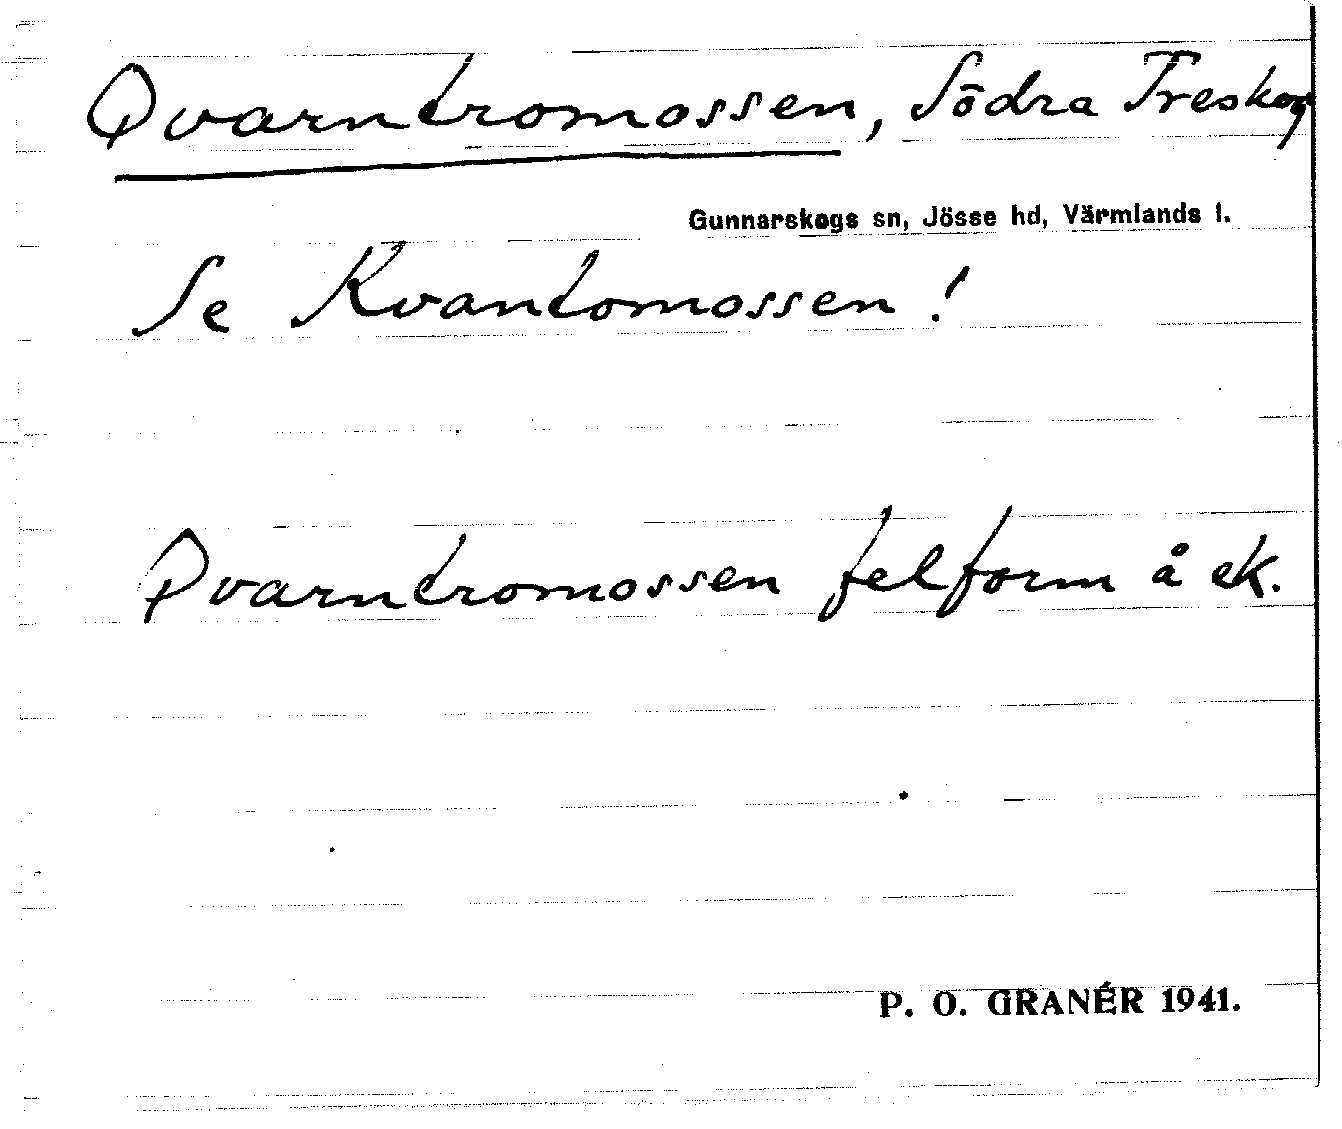 Qvarntromossen, Södra Treskog
Gunnarskogs sn, Jösse hd, Värmlands l.
Se Kvantomossen!
Qvarntromossen felform å ek.
P. O. GRANÉR 1941.